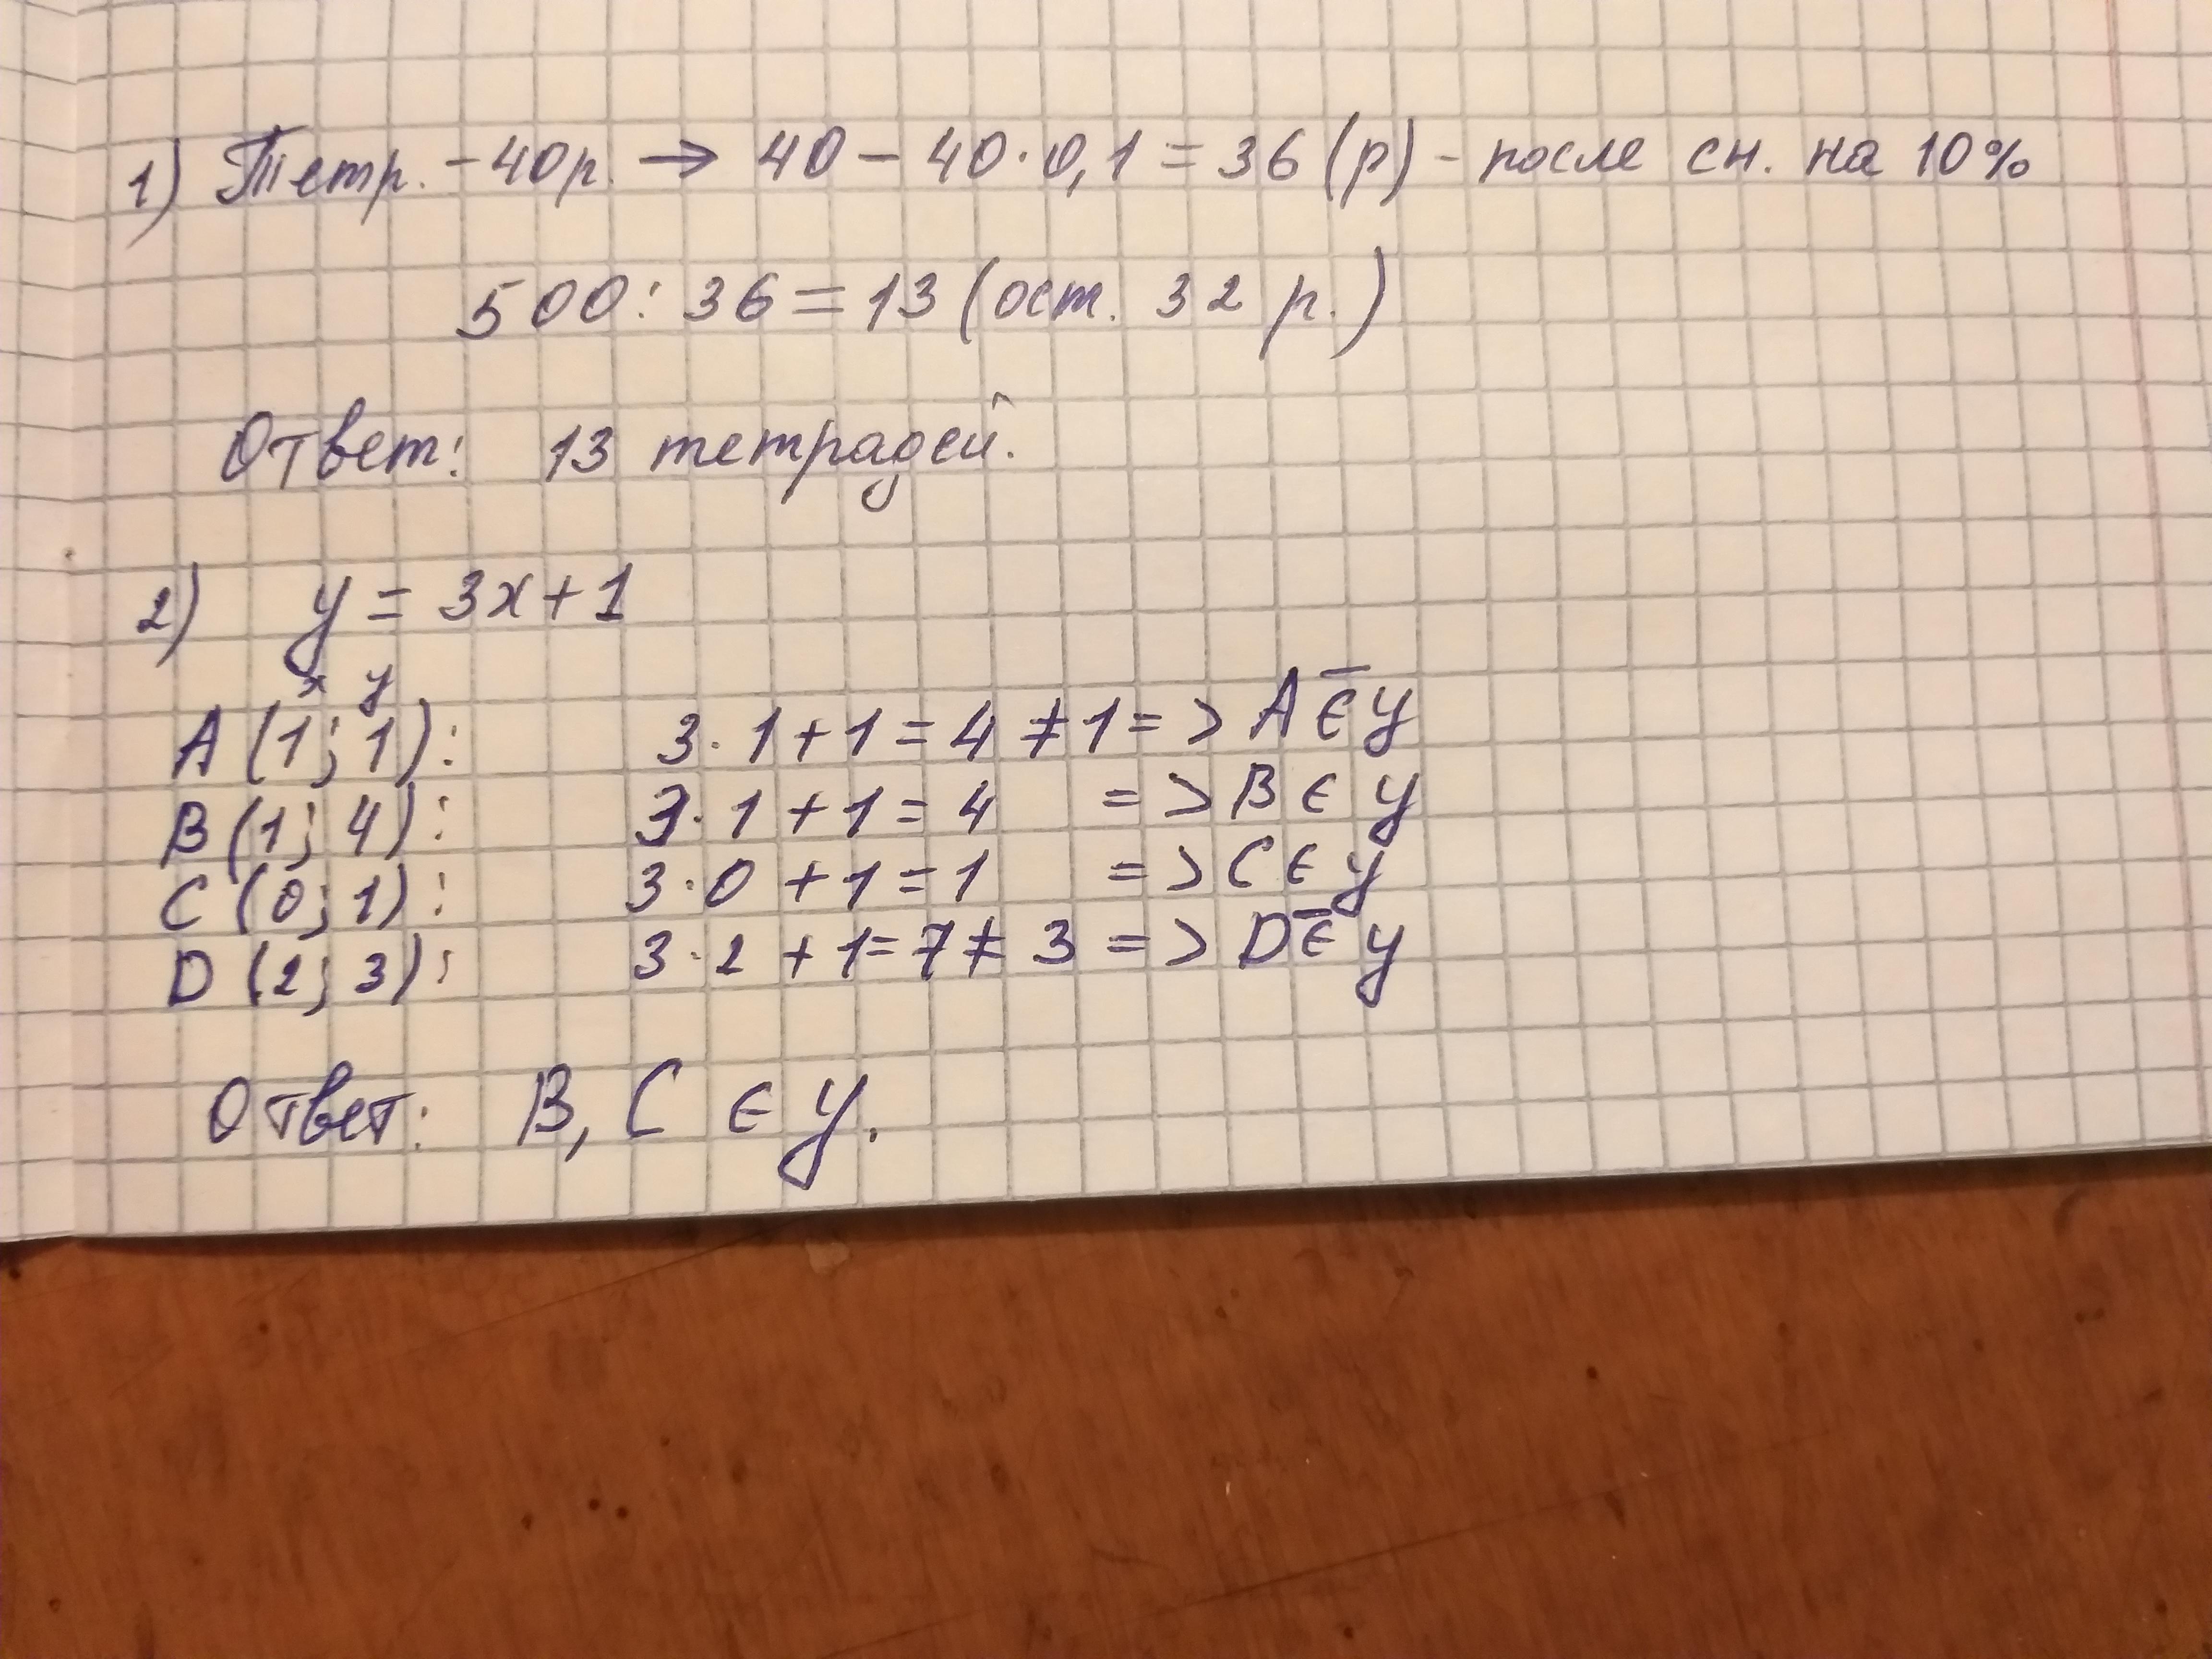 1) Тетр. - 40р. → 40 - 40·0,1 = 36 (р) - после сн. на 10%
500 : 36 = 13 (ост. 32 р.)
Ответ: 13 тетрадей.
2) y = 3x + 1
x y
A (1; 1): 3·1 + 1 = 4 ≠ 1 => A ∈̅ y
B (1; 4): 3·1 + 1 = 4 => B ∈ y
C (0; 1): 3·0 + 1 = 1 => C ∈ y
D (2; 3): 3·2 + 1 = 7 ≠ 3 => D ∈̅ y
Ответ: B, C ∈ y.